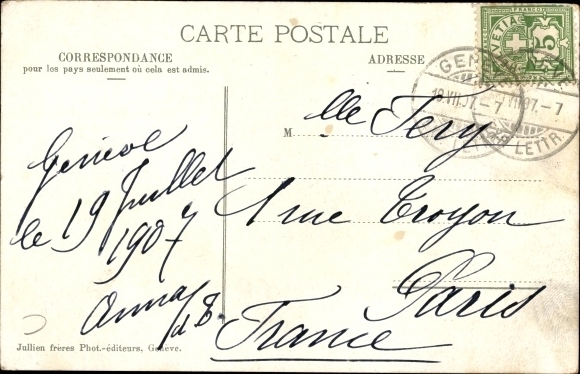 CARTE POSTALE
CORRESPONDANCE
pour les pays seulement où cela est admis.
ADRESSE
FRANCO
5
GEN
19.VII.07.-7
VII.07.-7
LETTR
Genève
le 19 Juillet
1907
Anna
d B.
Mlle Tery
1 rue Croyon
Paris
France
Jullien frères Phot.-éditeurs, Genève.